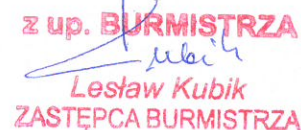 z up. BURMISTRZA
Lesław Kubik
ZASTĘPCA BURMISTRZA